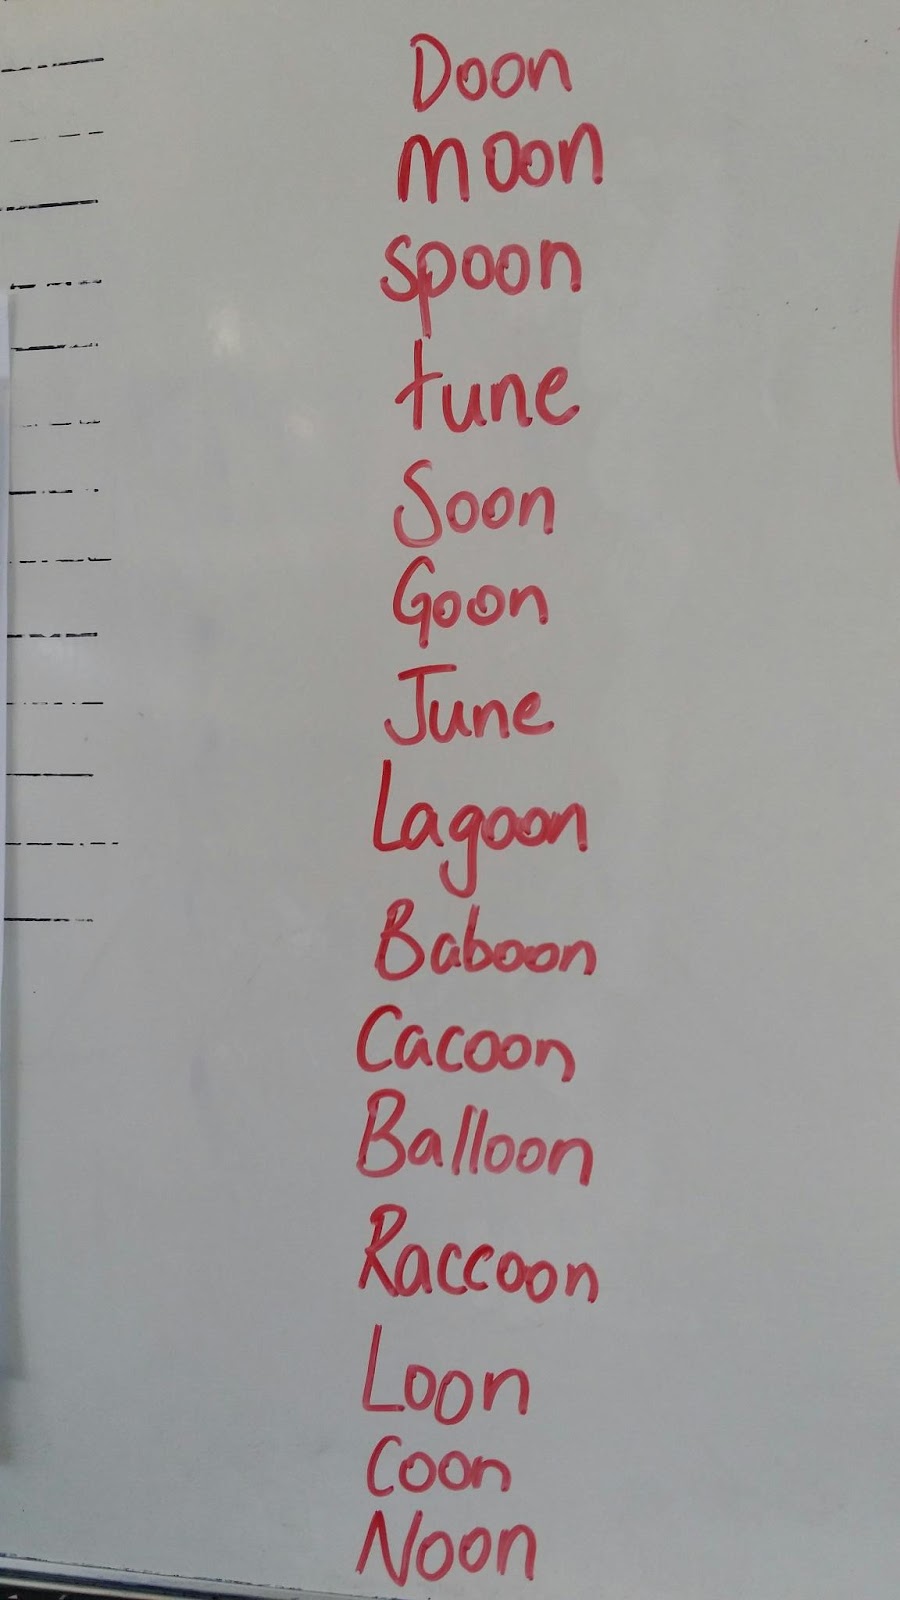 Doon
moon
spoon
tune
Soon
Goon
June
Lagoon
Baboon
Cacoon
Balloon
Raccoon
Loon
Coon
Noon